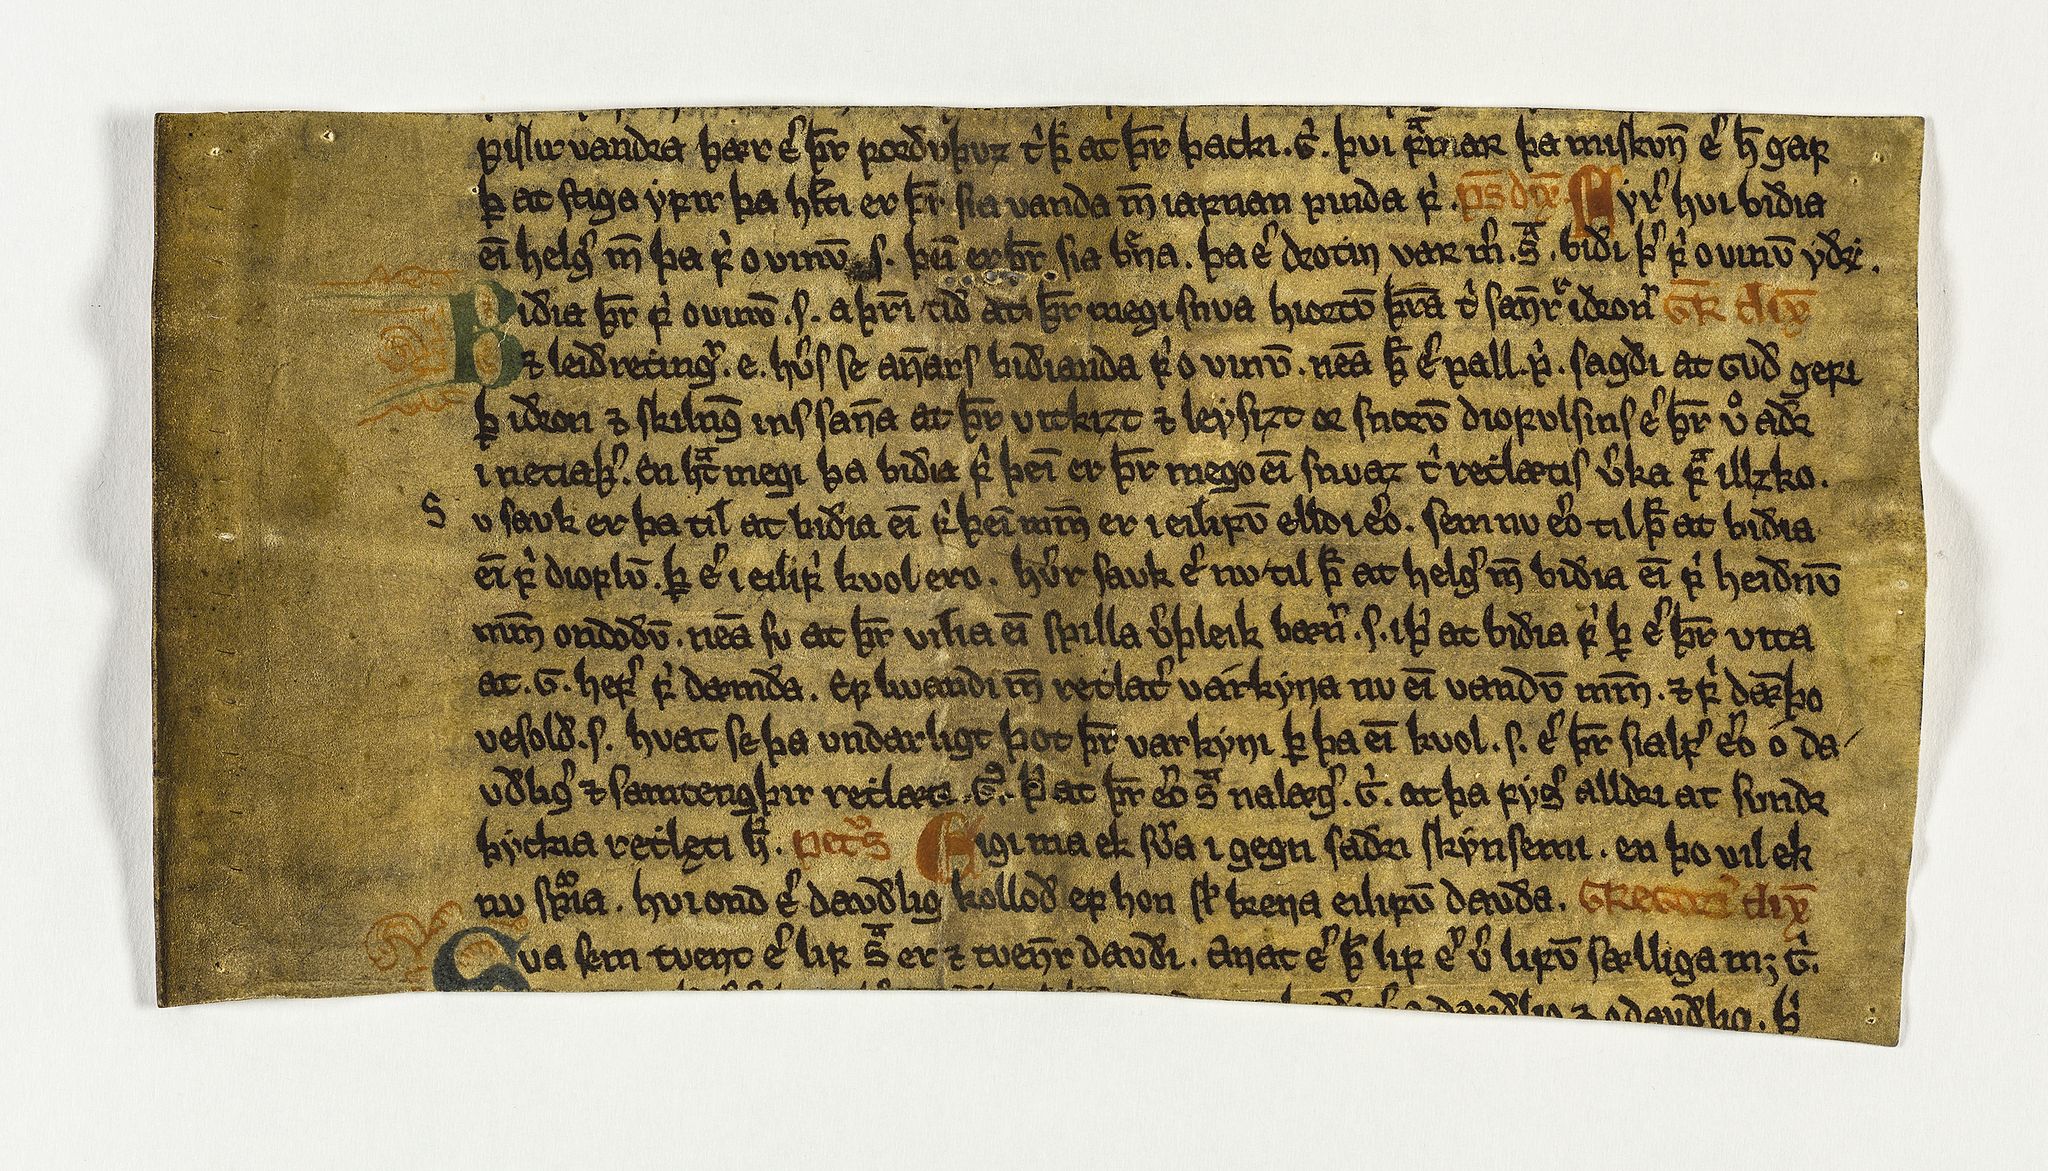 pislir vandra þær e͛ þr̄ forðvþvz t͛ þ̄ at þr̄ þacki . G͛ . þvi fᷓmar þa miskvn̄ e͛ h̄ gaf
þ̄ at stiga yfir þa hlvti er þr̄ sia vanda m̄ iafnan pinda f͛ . ps̄ dix̄ Fyr͛ hvi biðia
ei̅ helg͛ m̄ þa f͛ ovinv̅ .s. þei̅ er þr̄ sia b͛na . þa e͛ drotin var m͛ . sᷓ . biði þ͛ f͛ ovinv̅ yðr̄ .
Biðia þr̄ f͛ ovinv̅ .s. a þri̅ tið at þr̄ megi snva hiortv̅ þra̅ t͛ san̄r͛ iðron͛ Gr̄ dix̄
⁊ leiðreting͛ . e. hv͛s se an̄ars biðianda f͛ ovinv̅ . nea̅ þ̄ e͛ pall . p͛ . sagði at Guð gefi
þ̄ iðron ⁊ skilnīg ins san̄a at þr̄ vitkizt ⁊ leysizt or snorv̅ diofvlsins e͛ þr̄ v͛o aðr
i netiaþ͛ . En hᷓt megi þa biðia f͛ þei̅ er þr̄ mego ei̅ snvaz t͛ retlætis v͛ka fᷓ illzko .
S v savk er þa til at biðia ei̅ f͛ þei̅ mm̄ er i eilifv̅ elldi e͛o . sem nv e͛o til þ̄ at biðia
ei̅ f͛ dioflv̅ . þ̄ e͛ i eilif͛ kvol ero . hv͛r savk e͛ nv til þ̄ at helg͛ m̄ biðia ei̅ f͛ heiðnv̅
mm̄ ondoðv̅ . nea̅ sv at þr̄ vilia ei̅ spilla v͛þleik bæn͛ .s. i þ͛ at biðia f͛ þ̄ e͛ þr̄ vita
at . G . hef͛ f͛ dæmda . Ef livandi m̄ retlat͛ várkyna nv ei̅ vandv̅ mm̄ . ⁊ f͛ dæmþo
vesold .s. hvat se þa vndarligt þot þr̄ varkyni þ̄ þa ei̅ kvol .s. e͛ þr̄ sialf͛ e͛o ó da
vðlig͛ ⁊ samtengþir retlæti . G͛ . þ͛ at þr̄ e͛o sᷓ nalæg͛ . G͛ . at þa fys͛ alldri at svndr
þyckia retlęti h̄ . pet͛s Eigi ma ek sv͛a i gegn saðri skynsemi . en þo vil ek
nv spyria . hvi ond e͛ davðlig kolloð ef hon sl̄ brena eilifv̅ davða . Gregor͛ dix̄
Sva sem tvent e͛ lif sᷓ er ⁊ tven̄r davði . Anat e͛ þ̄ lif e͛ v͛ lifv̅ sælliga mꝫ G͛ .
davðlig ⁊ odavðlig . þ͛